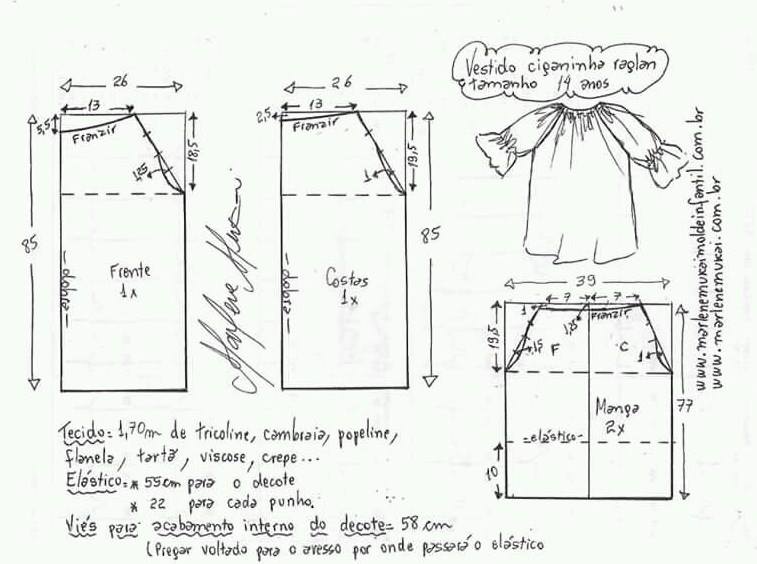 Vestido ciganinha raglan
tamanho 14 anos
26
13
5,5
Franzir
18,5
1,25
85
Frente
1x
dobra
26
13
2,5
Franzir
19,5
1
85
Costas
1x
dobra
Marlene Mukai
www.marlenemukaimoldeinfantil.com.br
www.marlenemukai.com.br
39
7
7
1
1,25
Franzir
19,5
F
C
1
77
Manga
2x
elástico
10
Tecido= 1,70m de tricoline, cambraia, popeline,
flanela, tartã, viscose, crepe...
Elástico= * 55cm para o decote
* 22 para cada punho.
Viés para acabamento interno do decote= 58 cm
(Pregar voltado para o avesso por onde passará o elástico